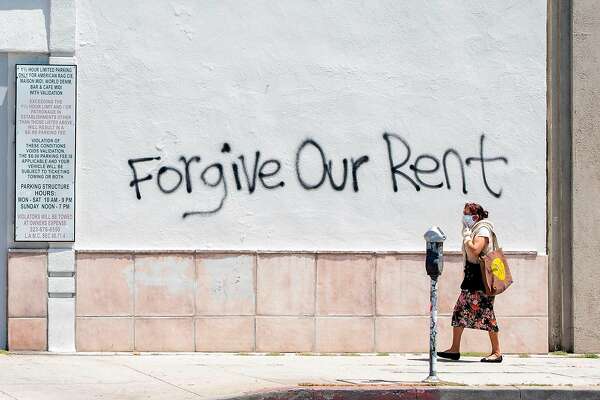 1½ HOUR LIMITED PARKING
ONLY FOR AMERICAN RAG CIE,
MAISON MIDI, WORLD DENIM,
BAR & CAFE MIDI
WITH VALIDATION.
EXCEEDING THE
1½ HOUR LIMIT AND / OR
PATRONAGE IN
ESTABLISHMENTS OTHER
THAN THOSE LISTED ABOVE
WILL RESULT IN A
PARKING FEE.
VIOLATION OF
THESE CONDITIONS
VOIDS VALIDATION.
PARKING FEE IS
APPLICABLE AND YOUR
VEHICLE WILL BE
SUBJECT TO TICKETING
TOWING OR BOTH
PARKING STRUCTURE
HOURS:
MON - SAT 10 AM - 9 PM
SUNDAY NOON - 7 PM
VIOLATORS WILL BE TOWED
AT OWNERS EXPENSE
L.A.M.C. SEC
Forgive Our Rent